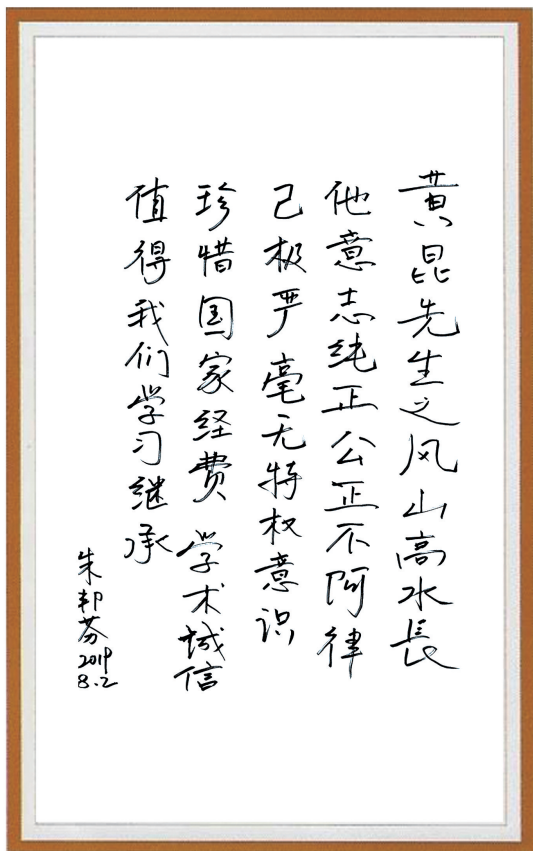 黄昆先生之风山高水長
他意志纯正公正不阿律
己极严毫无特权意识
珍惜国家经费学术诚信
值得我们学习继承
朱邦芬
2019
8.2